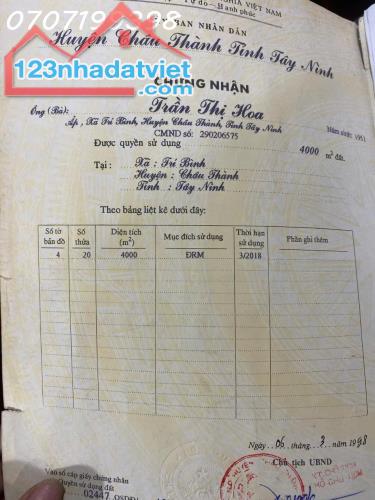 NGHĨA VIỆT NAM
070719
Tự do - Hạnh phúc
BAN NHÂN DÂN
Huyện Châu Thành Tỉnh Tây Ninh
123nhadatviet
CHỨNG NHẬN
Ông (Bà): Trần Thị Hoa Năm sinh: 1951
Ấp, Xã Trí Bình, Huyện Châu Thành, Tỉnh Tây Ninh
CMND số: 290206575
Được quyền sử dụng 4000 m² đất.
Tại : Xã : Trí Bình
Huyện : Châu Thành
Tỉnh : Tây Ninh
Theo bảng liệt kê dưới đây:
Số tờ bản đồ Số thửa Diện tích (m²) Mục đích sử dụng Thời hạn sử dụng Phần ghi thêm
4 20 4000 ĐRM 3/2018
Ngày 06 tháng 3 năm 1998
Chủ tịch UBND
Vào sổ cấp giấy chứng nhận
Quyền sử dụng đất
02447 QSDĐ/